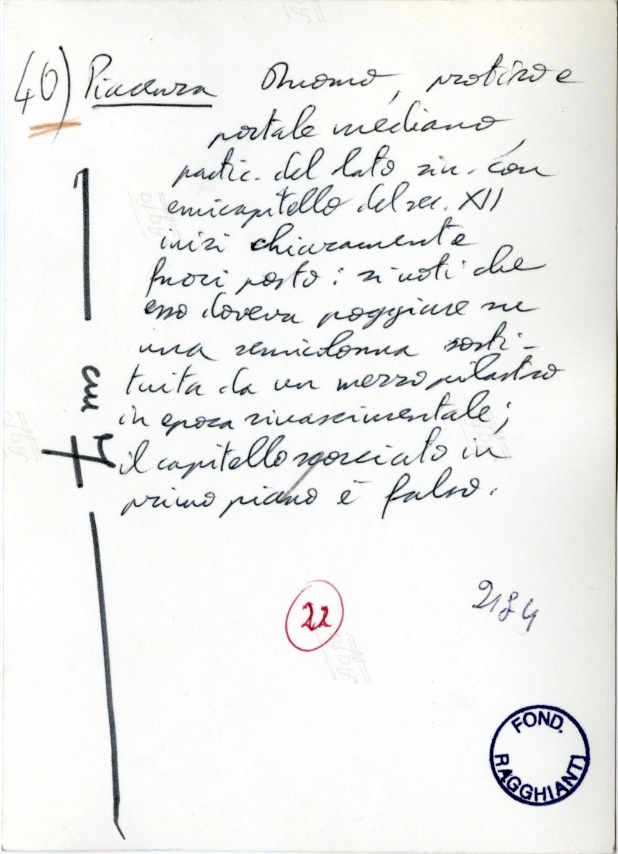 40) Piacenza Duomo, protiro e
portale mediano,
partic. del lato sin. con
emicapitello del sec. XII
inizi chiaramente
fuori posto: si noti che
esso doveva poggiare su
una semicolonna sosti-
tuita da un mezzo pilastro
in epoca rinascimentale;
il capitello scorciato in
primo piano è falso.
cm 7
22
2184
FOND.
RAGGHIANTI
Agfa
Agfa
Agfa